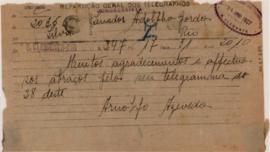 REPARTIÇÃO GERAL DOS TELEGRAPHOS
Senador Adolpho Gordo
Rio
397 17 20/10
Muitos agradecimentos e affectuo
sos abraços pelos seu telegramma de
28 deste
Arnolfo Azevedo